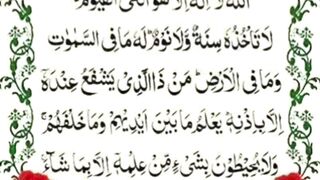 اَللّٰهُ لَاۤ اِلٰهَ اِلَّا هُوَ الْحَیُّ الْقَیُّوْمُ
لَا تَاْخُذُهٗ سِنَةٌ وَّلَا نَوْمٌ ؕ لَهٗ مَا فِی السَّمٰوٰتِ
وَمَا فِی الْاَرْضِ ؕ مَنْ ذَا الَّذِیْ یَشْفَعُ عِنْدَهٗۤ
اِلَّا بِاِذْنِهٖ ؕ یَعْلَمُ مَا بَیْنَ اَیْدِیْهِمْ وَمَا خَلْفَهُمْ ۚ
وَلَا یُحِیْطُوْنَ بِشَیْءٍ مِّنْ عِلْمِهٖۤ اِلَّا بِمَا شَآءَ